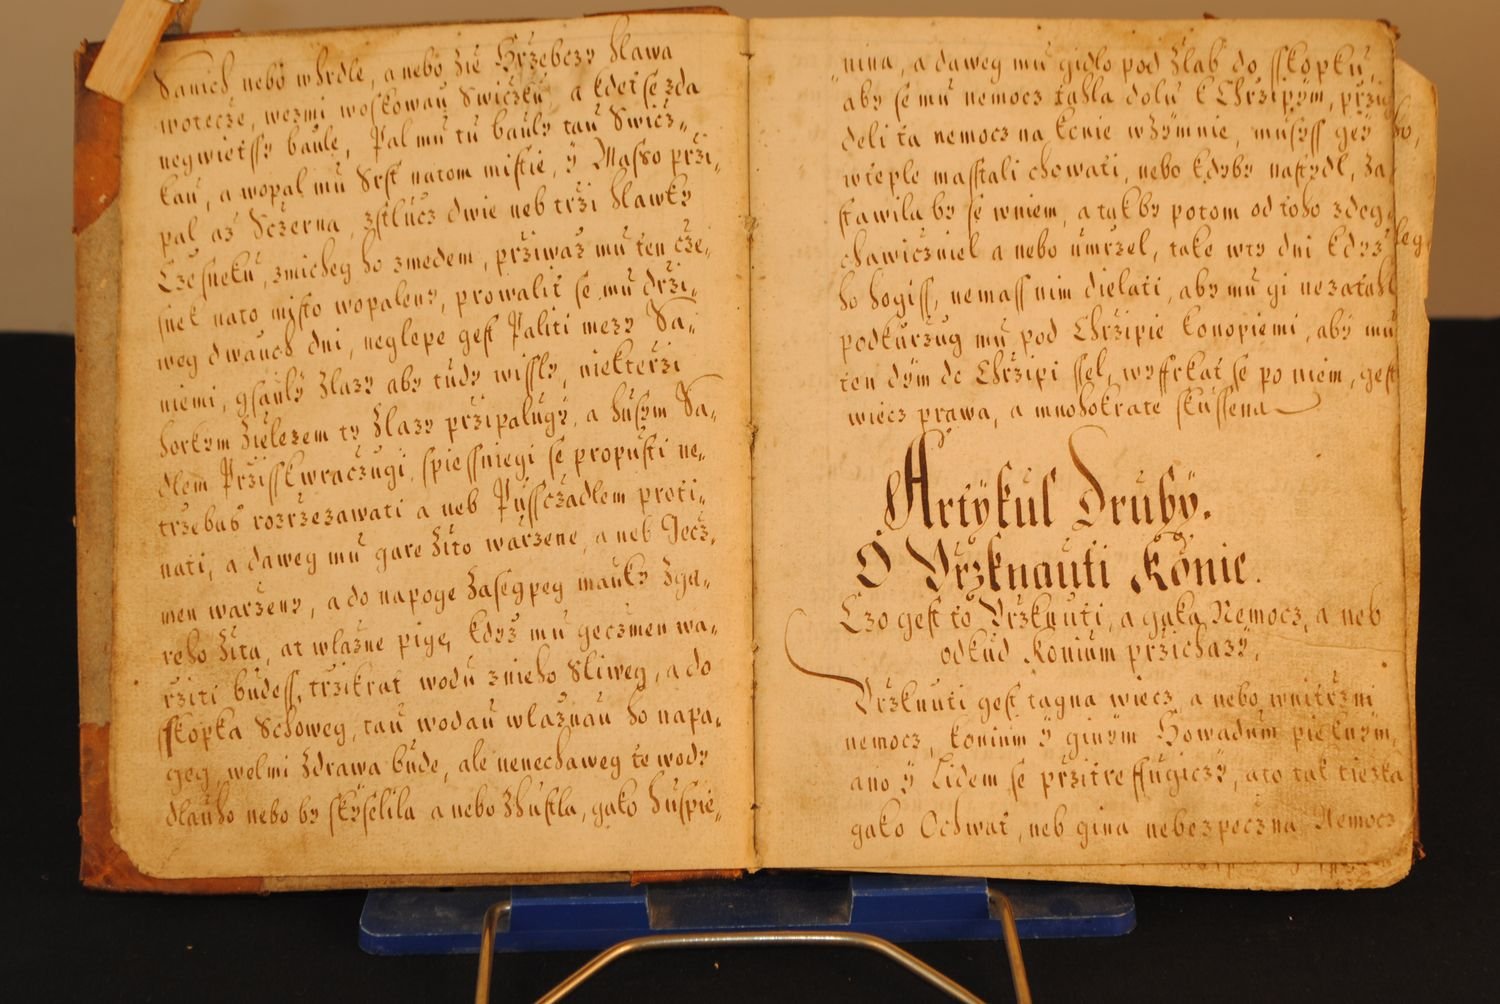 Sanich nebo w hrdle, a nebo žie Hržebczy hlawa
wotecže, wezmi woskowau Swicžků, a kdet se zda
negwietssy baule, Pal mu tů bauly taů Swicž-
kau, a wopal mů Srst natom mistie, ÿ Masso prži-
pal až Scžerna, zstlucz dwie neb trži hlawky
Cžesneků, zmicheg ho zmedem, prživaž mů ten cže-
snek nato misto wopaleny, prowalit se mů drži-
weg dwauch dni, neglepe gest Paliti mezy Sa-
niemi, gsaulÿ žlazy aby tůdy wissly, niekterži
horkym železem ty žlazy pržipalugÿ, a husym Sa-
dlem Pržisskwracžugi, spiessniegi se propusti ne-
trzebas rozržezawati a neb Půssczadlem proti-
nati, a daweg mů gare žito warzene, a neb Gecž-
men warženy, a do napoge zasegpeg mauky zga-
reho žita, at wlažne pige, když mů gecžmen wa-
ržiti budess, tržikrat wodů znieho Sliweg, a do
sskopka Schoweg, taů wodaů wlažnaů ho napa-
geg welmi zdrawa bude, ale nenechaweg te wody
dlauho nebo by skyselila a nebo zhustla, gako huspe-
nina, a daweg mů gidlo pod žlab do sskopků,
aby se mů nemocz tahla dolů k Chržipÿm, przig
deli ta nemocz na konie wzymnie, musyss geÿ ho,
wteple masstali chowati, nebo kdyby nastydl, za-
stawila by se wniem, a tak by potom od toho zdeg-
chawicžniel a nebo umržel, take wty dni když geg
ho hogiss, nemass nim dielati, aby mů gi nezatahl
podkuržug mů pod Chržipie konopiemi, aby mů
ten dÿm do Chržipi ssel, wyffrkat se po niem, gest
wiecz prawa, a mnohokrate skussena
Artÿkul Druhÿ.
O Vržknauti Konie.
Czo gest to Vržknuti, a gaka Nemocz, a neb
odkud Konium pržichazÿ,
Vržknuti gest tagna wiecz, a nebo wnitržni
nemocz, konium ÿ ginÿm Howadum pieknÿm,
ano ÿ Lidem se pržitreffugiczy, a to tak tiežka
gako Ochwat, neb gina nebezpecžna Nemocz